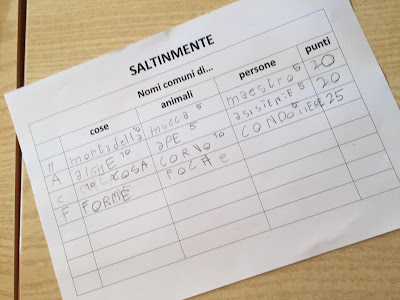 SALTINMENTE
Nomi comuni di...
cose animali persone punti
mortadella 10 mucca 5 maestro 5 20
A alGHE 10 APE 5 5 20
c 10 COSA CORVO 10 5 25
F FORME FOCHe